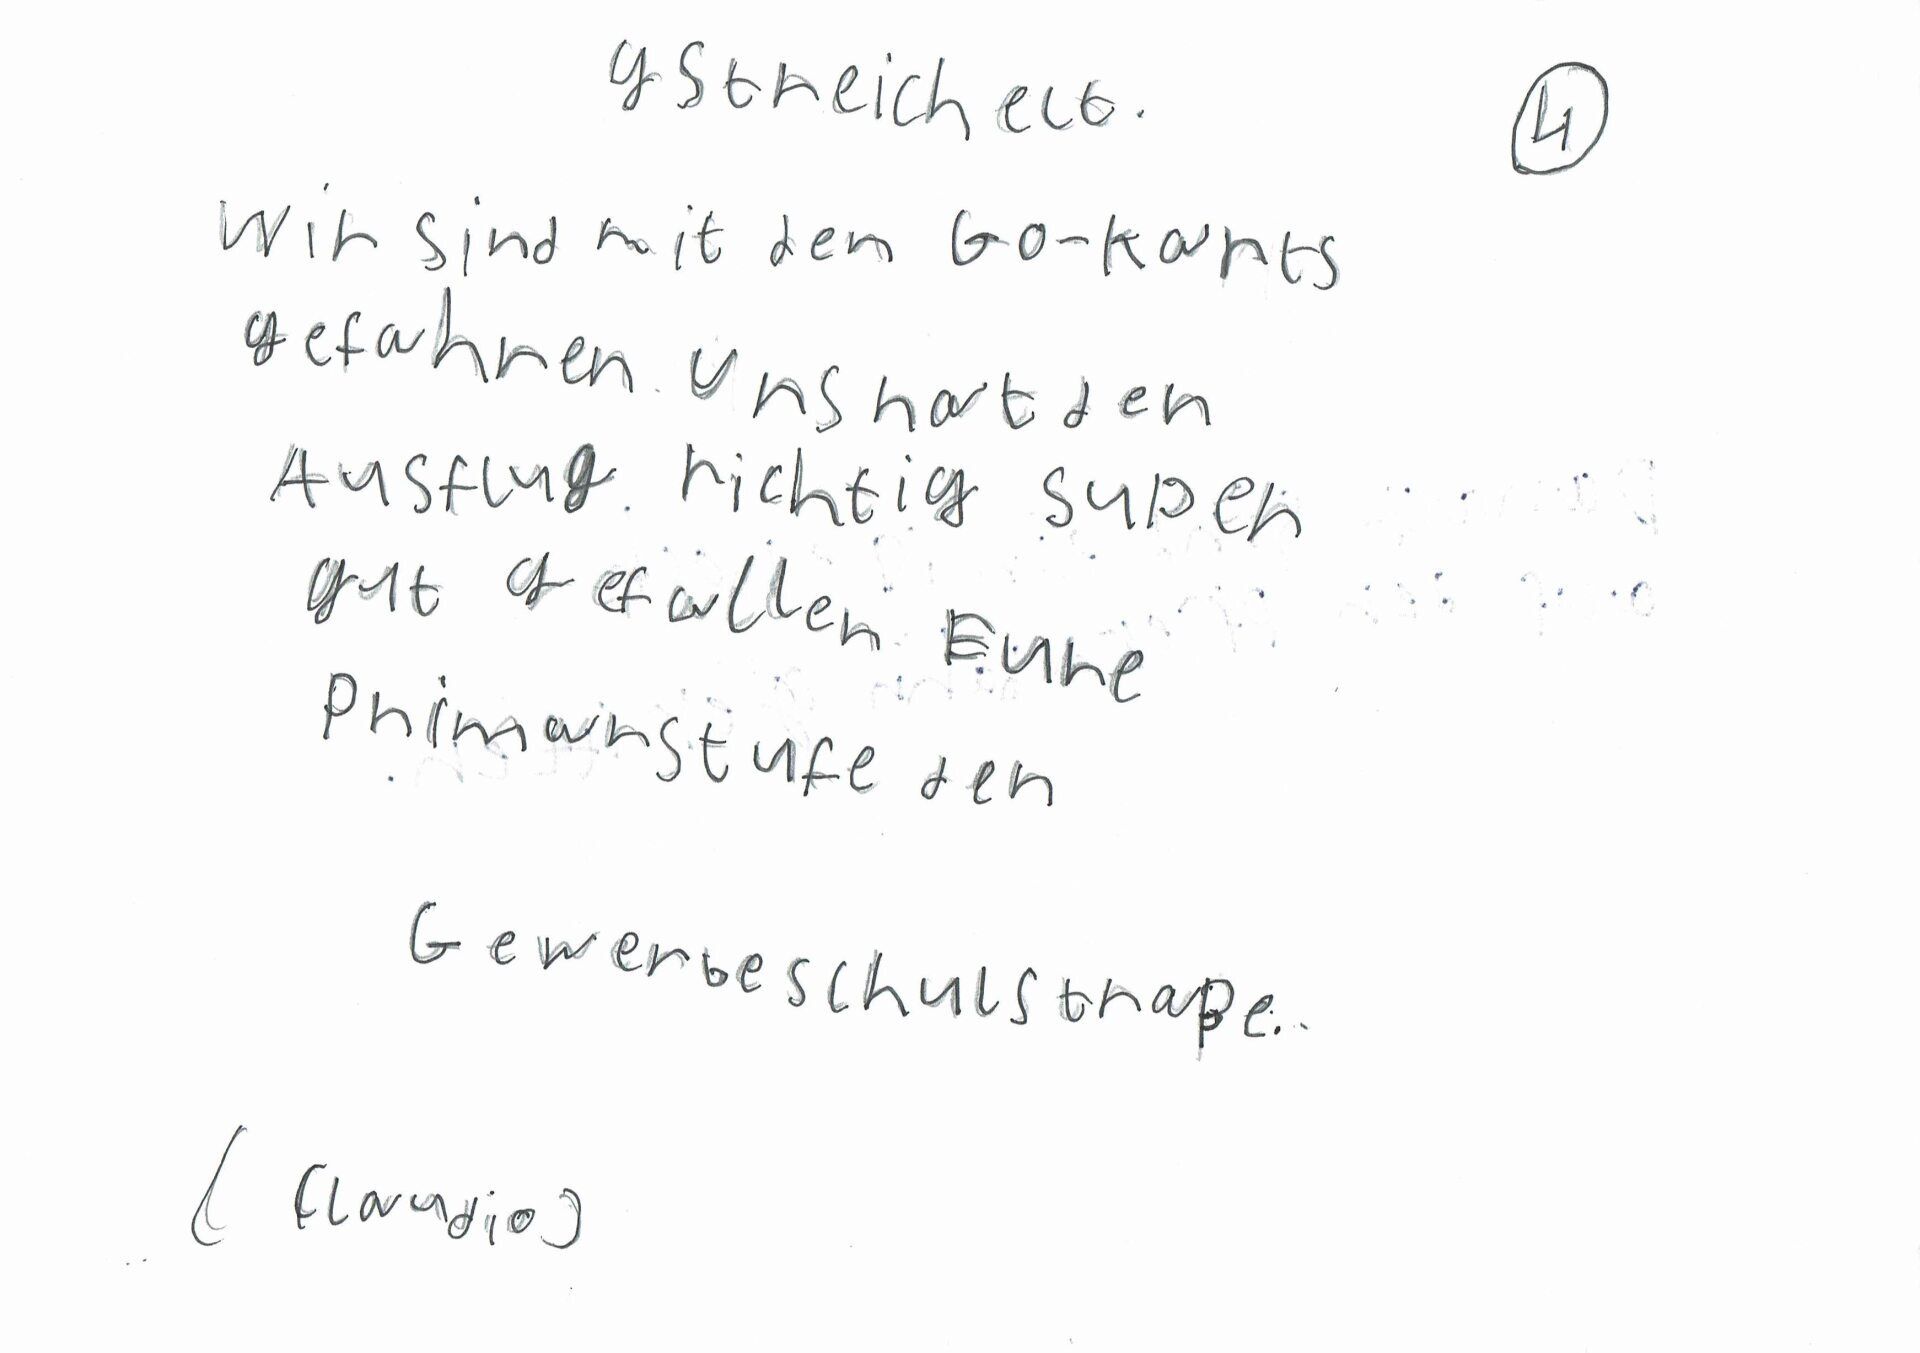 gstreichelt.
4
Wir sind mit dem Go-Karts
gefahren. Uns hat den
Ausflug richtig super
gut gefallen Eure
Primarstufe der
Gewerbeschulstraße.
(Claudio)